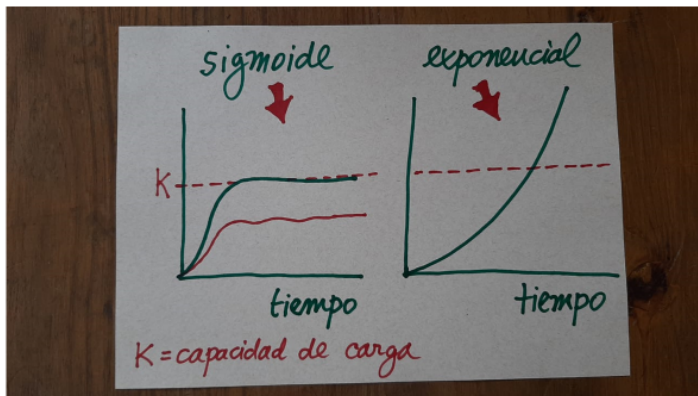 sigmoide
exponencial
K
tiempo
tiempo
K = capacidad de carga